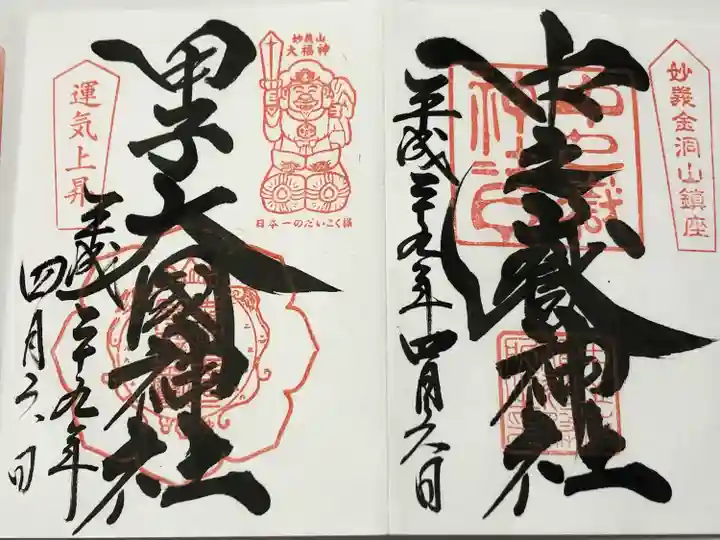 妙義金洞山鎮座
中之嶽神社
平成二十九年四月六日
妙義山
大福神
日本一のだいこく様
甲子大國神社
運気上昇
平成二十九年
四月六日